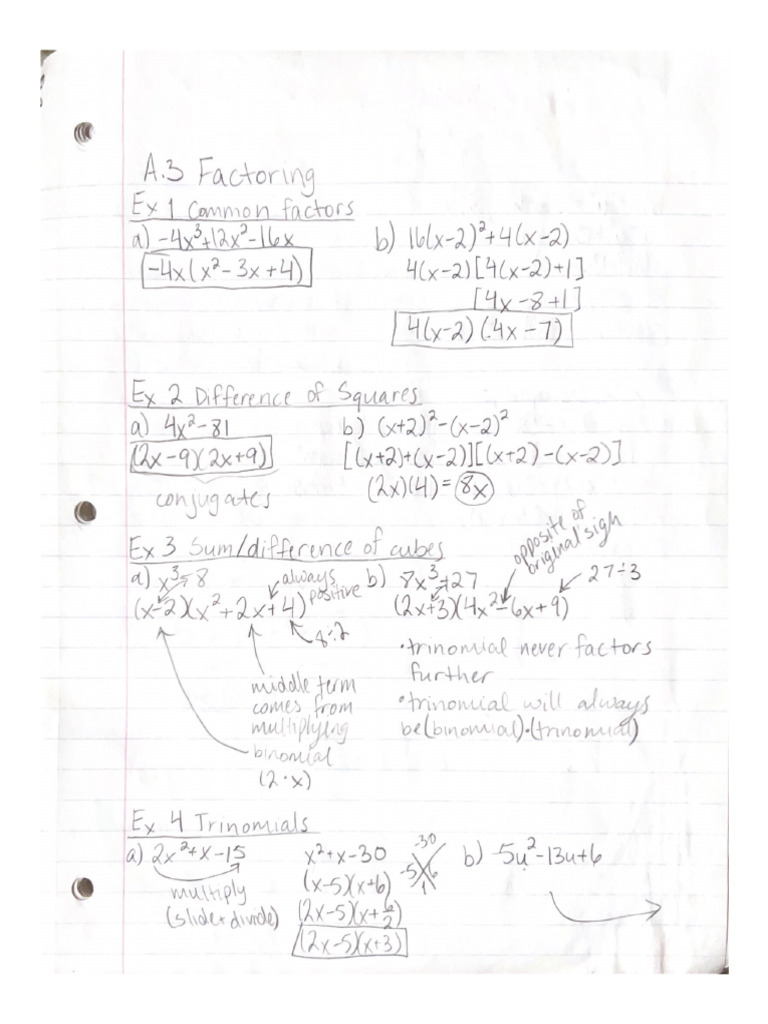 A.3 Factoring
Ex 1 Common factors
a) -4x³+12x²-16x
-4x(x²-3x+4)
b) 16(x-2)²+4(x-2)
4(x-2)[4(x-2)+1]
[4x-8+1]
4(x-2)(4x-7)
Ex 2 Difference of Squares
a) 4x²-81
(2x-9)(2x+9)
conjugates
b) (x+2)²-(x-2)²
[(x+2)+(x-2)][(x+2)-(x-2)]
(2x)(4)=8x
Ex 3 Sum/difference of cubes
a) x³-8
(x-2)(x²+2x+4)
always
positive
8÷2
middle term
comes from
multiplying
binomial
(2·x)
b) 8x³+27
(2x+3)(4x²-6x+9)
opposite of
original sign
27÷3
·trinomial never factors
further
·trinomial will always
be(binomial)·(trinomial)
Ex 4 Trinomials
a) 2x²+x-15
multiply
(slide+divide)
x²+x-30
(x-5)(x+6)
(2x-5)(x+6/2)
(2x-5)(x+3)
-30
-5 6
1
b) -5u²-13u+6